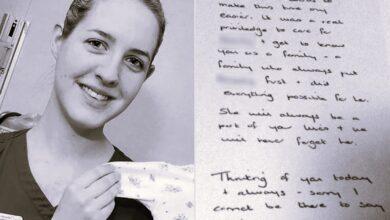 make this time any
easier. It was a real
priviledge to care for
get to know
you as a family - a
family who always put
first + did
everything possible for he.
She will always be a
part of your lives + we
will never forget he.
Thinking of you today
+ always - sorry I
cannot be there to say